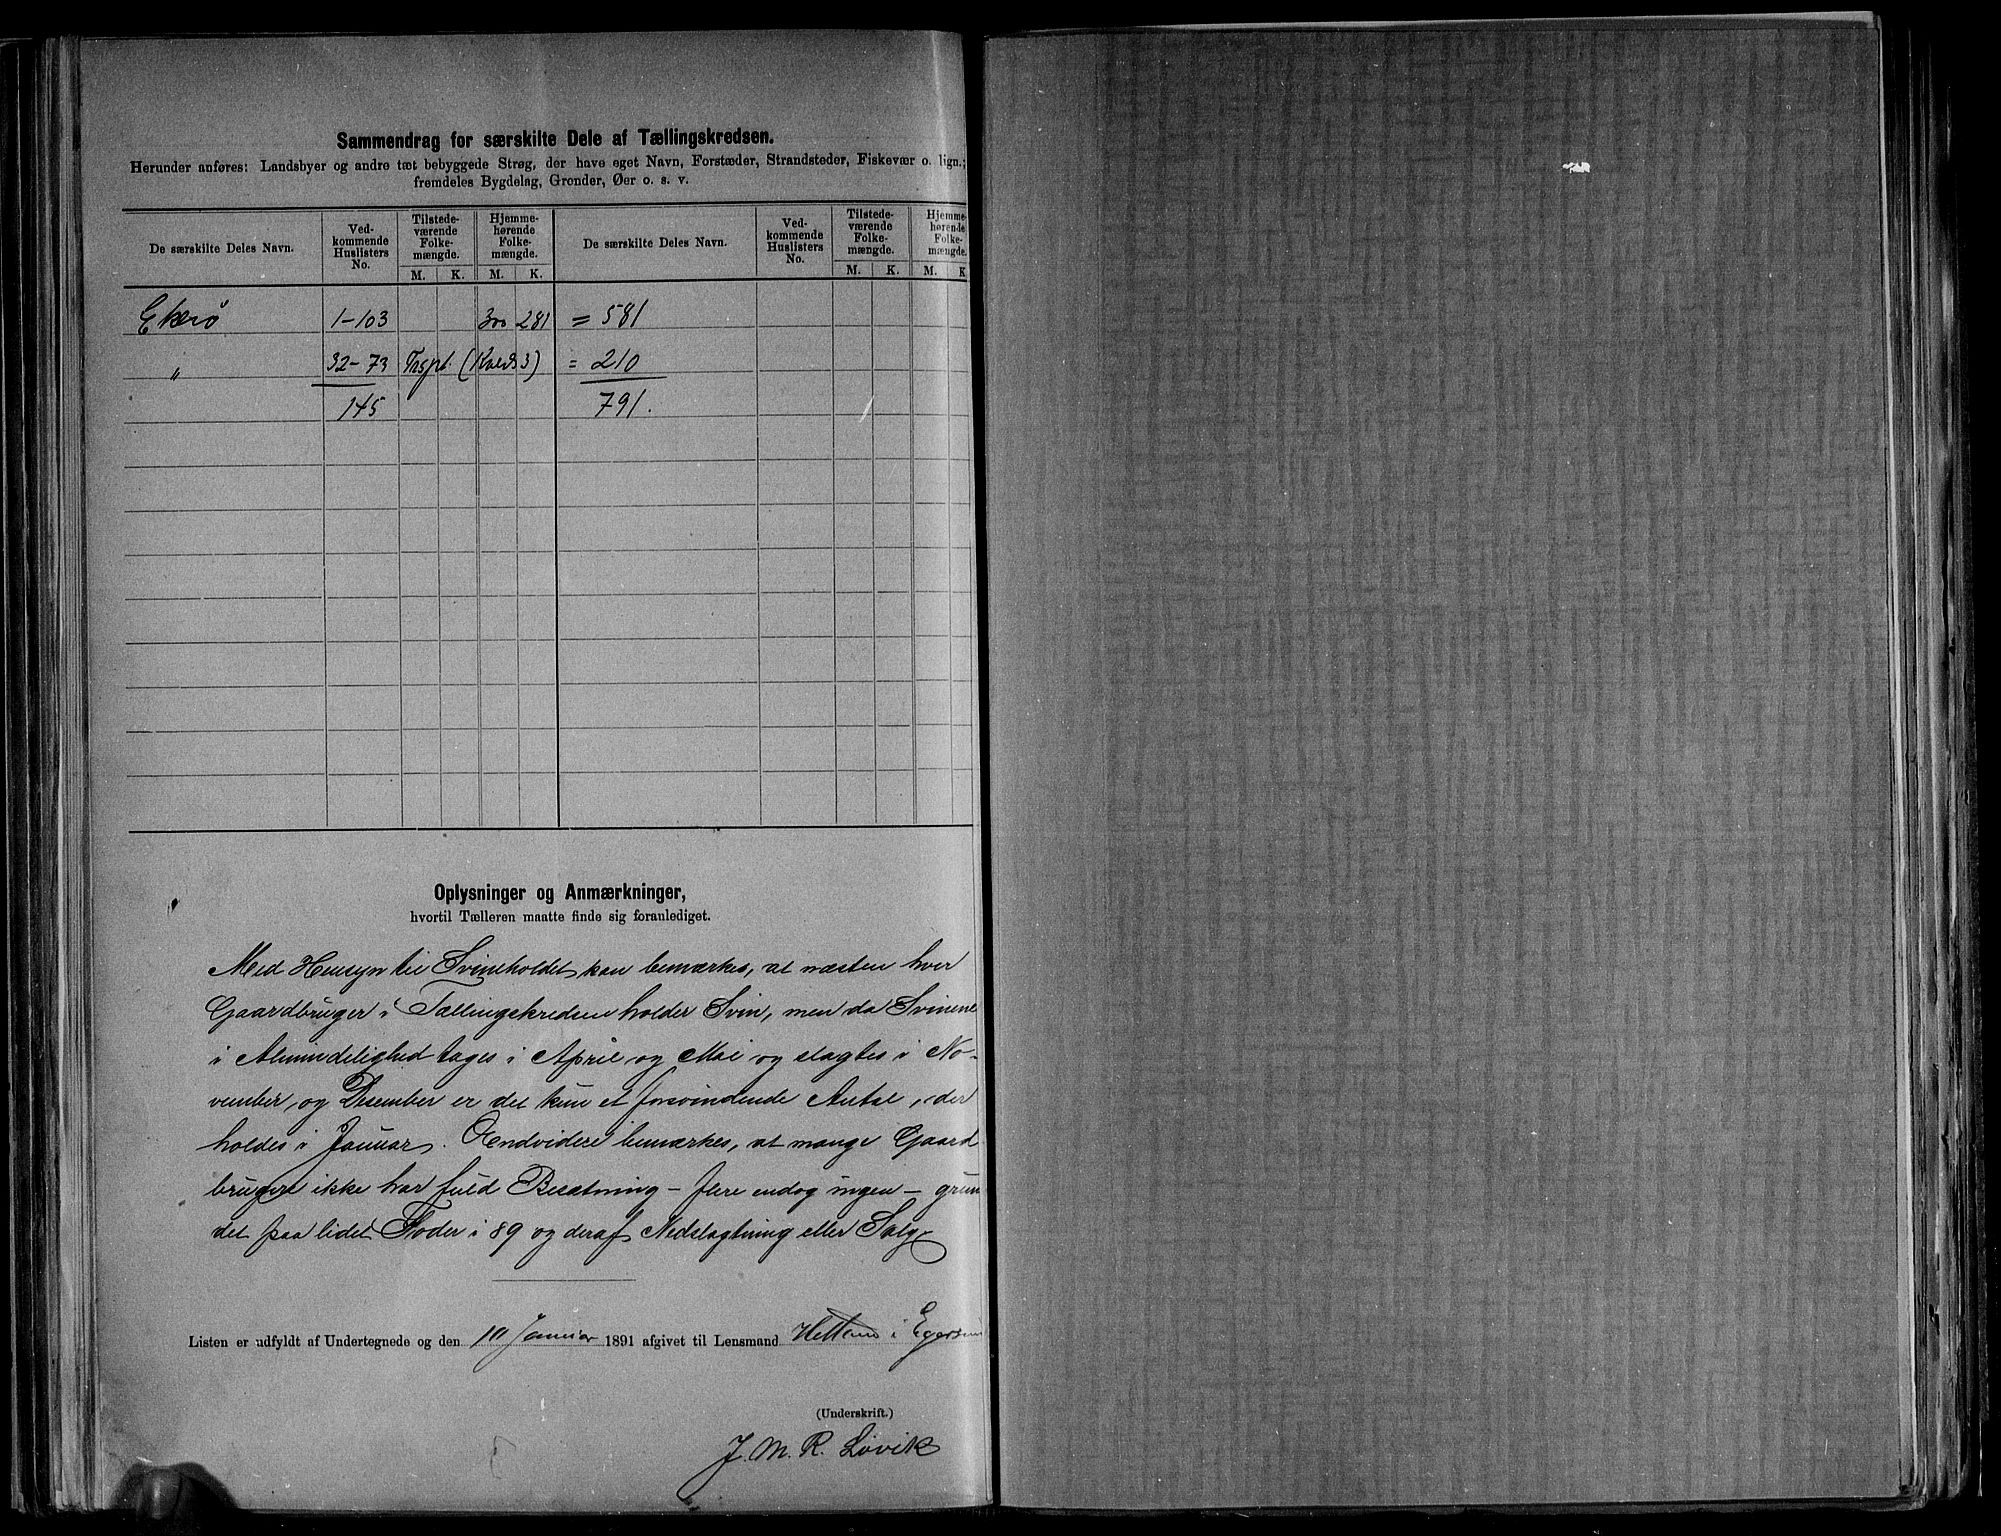 Sammendrag for særskilte Dele af Tællingskredsen.
Herunder anføres: Landsbyer og andre tæt bebyggede Strøg, der have eget Navn, Forstæder, Strandsteder, Fiskevær o. lign.;
fremdeles Bygdelag, Grender, Øer o. s. v.
De særskilte Deles Navn. Ved-kommende Huslisters No. Tilstede-værende Folke-mængde. Hjemme-hørende Folke-mængde. De særskilte Deles Navn. Ved-kommende Huslisters No. Tilstede-værende Folke-mængde. Hjemme-hørende Folke-mængde.
M. K. M. K. M. K. M. K
Ekerø 1-103 300 281 = 581
" 32-73 Trspt. (Kreds 3) = 210
145 791.
Oplysninger og Anmærkninger,
hvortil Tælleren maatte finde sig foranlediget.
Med Hensyn til Svineholdet kan bemærkes, at næsten hver
Gaardbruger i Tællingskredsen holder Svin, men da Svinene
i Almindelighed tages i April og Mai og slagtes i No-
vember og Desember er det kun et forsvindende Antal, der
holdes i Januar. Endvidere bemærkes, at mange Gaard
brugere ikke har fuld Besætning - flere endog ingen - grun
det paa lidet Foder i 89 og deraf Nedslagtning eller Salg.
Listen er udfyldt af Undertegnede og den 10 Januar 1891 afgivet til Lensmand Hetland i Egersun
(Underskrift.)
J. M. R. Løvik